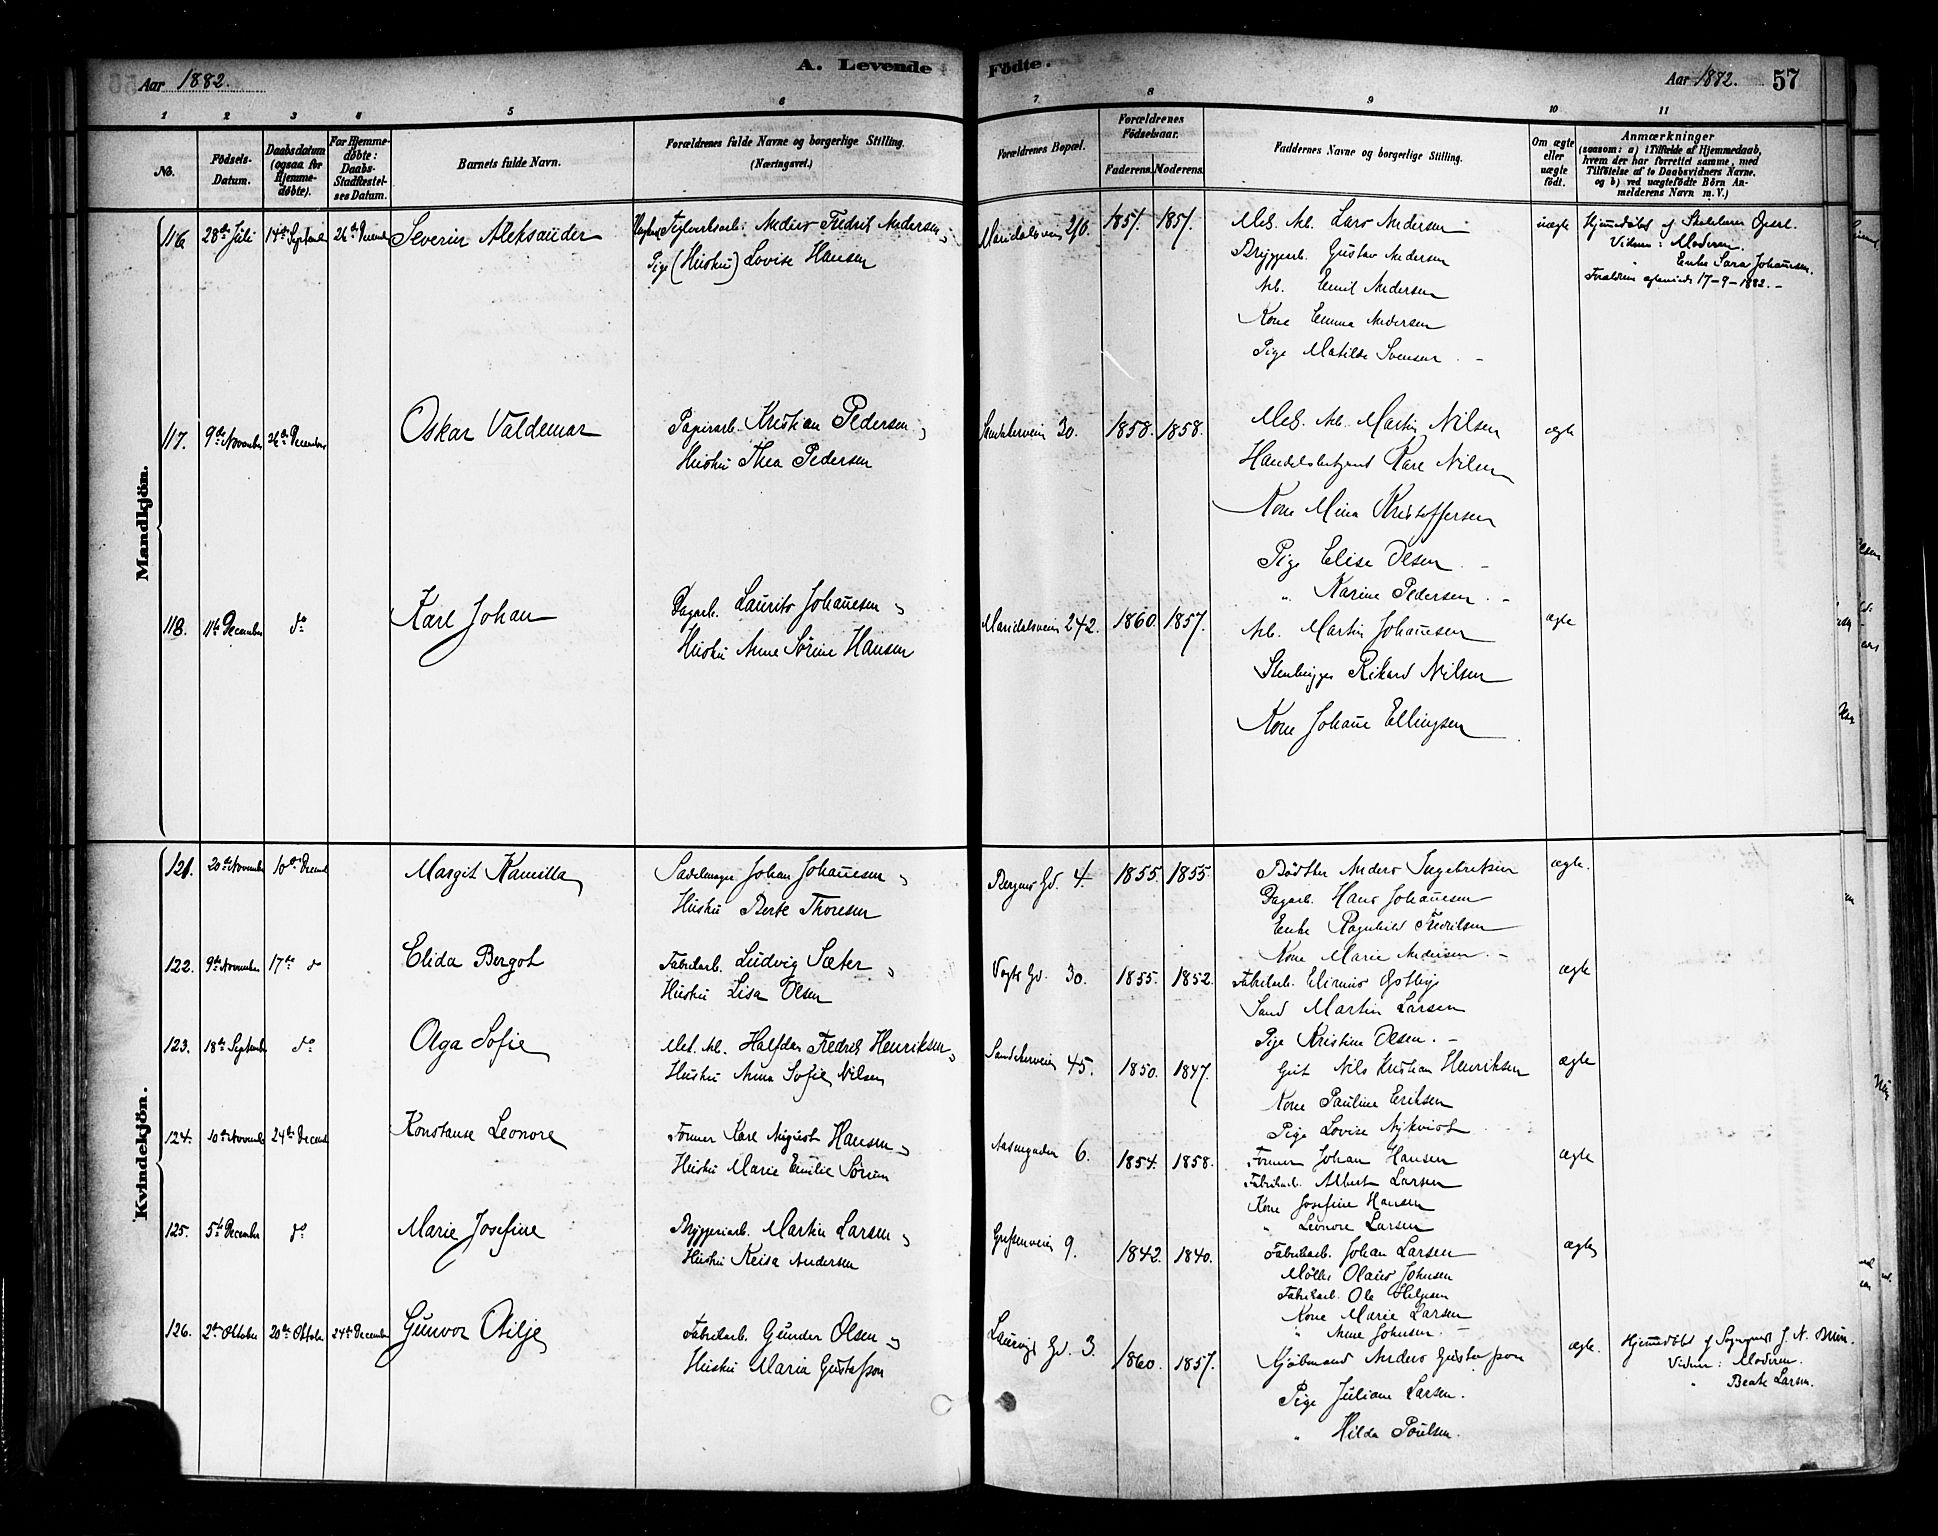 Aar 1882.
A. Levende Födte.
Aar 1882. 57
1 2 3 4 5 6 7 8 9 10 11
No.
Födsels-Datum.
Daabsdatum (ogsaa for Hjemmedöbte).
For Hjemmedöbte: Daabs-Stadfæstelses Datum.
Barnets fulde Navn.
Forældrenes fulde Navne og borgerlige Stilling. (Næringsvei.)
Forældrenes Bopæl.
Forældrenes Födselsaar.
Faderens. Moderens.
Faddernes Navne og borgerlige Stilling.
Om ægte eller uægte født.
Anmærkninger
(saasom: a) i Tilfælde af Hjemmedaab,
hvem der har forrettet samme, med
Tilföielse af to Daabsvidners Navne.
og b) ved uægtefödte Börn An-
melderens Navn m. V.)
Mandkjön.
116 28de Juli 14de Septemb 26de Decemb Severin Aleksander
Teglverksarb. Anders Fredrik Andersen
Pige (Hustru) Lovise Hansen
Maridalsveien 210. 1851. 1857.
Mek. Arb. Lars Andersen
Bryggerarb. Gustav Andersen
Arb. Emil Andersen
Kone Emma Andersen
Pige Matilde Svensen. –
uægte
Hjemmedöbt af
Vidner: Moderen.
" Enke Sara Johansen.
Forældrene 17-9-1882. –
117. 9de November 26de December Oskar Valdemar
Papirarb. Kristian Pedersen
Hustru Thea Pedersen
Sandakerveien 30. 1858. 1858.
Mek. Arb. Martin Nilsen
Handelsbetjent Kare Nilsen
Kone Mina Kristoffersen
Pige Elise Olsen –
" Karine Pedersen. –
ægte
118. 11te December do Karl Johan
Dagarb. Laurits Johannesen
Hustru Anne Sørine Hansen
Maridalsveien 242. 1860. 1857.
Arb. Martin Johannesen
Stenhugger Rikard Nilsen
Kone Johanne Ellingsen
ægte
Kvindekjön.
121. 20de November 10de Decemb Margit Kamilla
Sadelmager Johan Johannesen
Hustru Berte Thoresen
Bergens Gd. 4. 1855. 1855.
Bødker Anders Ingebretsen
Dagarb. Hans Johannesen
Enke Ragnhild Fredriksen
Kone Marie Andersen. –
ægte.
122. 9de November 17de do Elida Bergot
Fabrikarb. Ludvig Sæter
Hustru Lisa Olsen
Vogts Gd. 30. 1855. 1852.
Fabrikarb. Elimius Østbye
Martin Larsen
Pige Kristine Olsen. –
ægte
123. 18de Septemb do Olga Sofie
Mek. Arb. Halfdan Fredrik Henriksen
Hustru Anna Sofie Nilsen
Sandakerveien 45. 1850. 1847.
Nils Kristian Henriksen
Kone Pauline Eriksen
Pige Lovise Nykvist
ægte
124. 10de Novemb 24de Decemb Konstanse Leonore
Former Karl August Hansen
Hustru Marie Emilie Sørum
Aasengaden 6. 1854. 1858.
Former Johan Hansen
Fabrikarb. Albert Larsen
Kone Josefine Hansen
" Leonore Larsen
ægte
125. 5te December do Marie Josefine
Bryggeriarb. Martin Larsen
Hustru Keisa Andersen
Grefsenveien 9. 1842. 1840.
Fabrikarb. Johan Larsen
Møller Olaus Johnsen
Fabrikarb. Ole Helgesen
Kone Marie Larsen
" Anne Johnsen. –
ægte
126. 2de Oktober 20de Oktober 24de December Gunvor Oilje
Fabrikarb. Gunder Olsen
Hustru Maria Gustafsson
Gd. 3. 1860. 1857.
Kjøbmand Anders Gustafsson
Pige Juliane Larsen.
" Hilda Poulsen.
ægte.
Hjemmedöbt af Sogneprest J. N. Brun.
Vidner: Moderen.
" Beate Larsen.